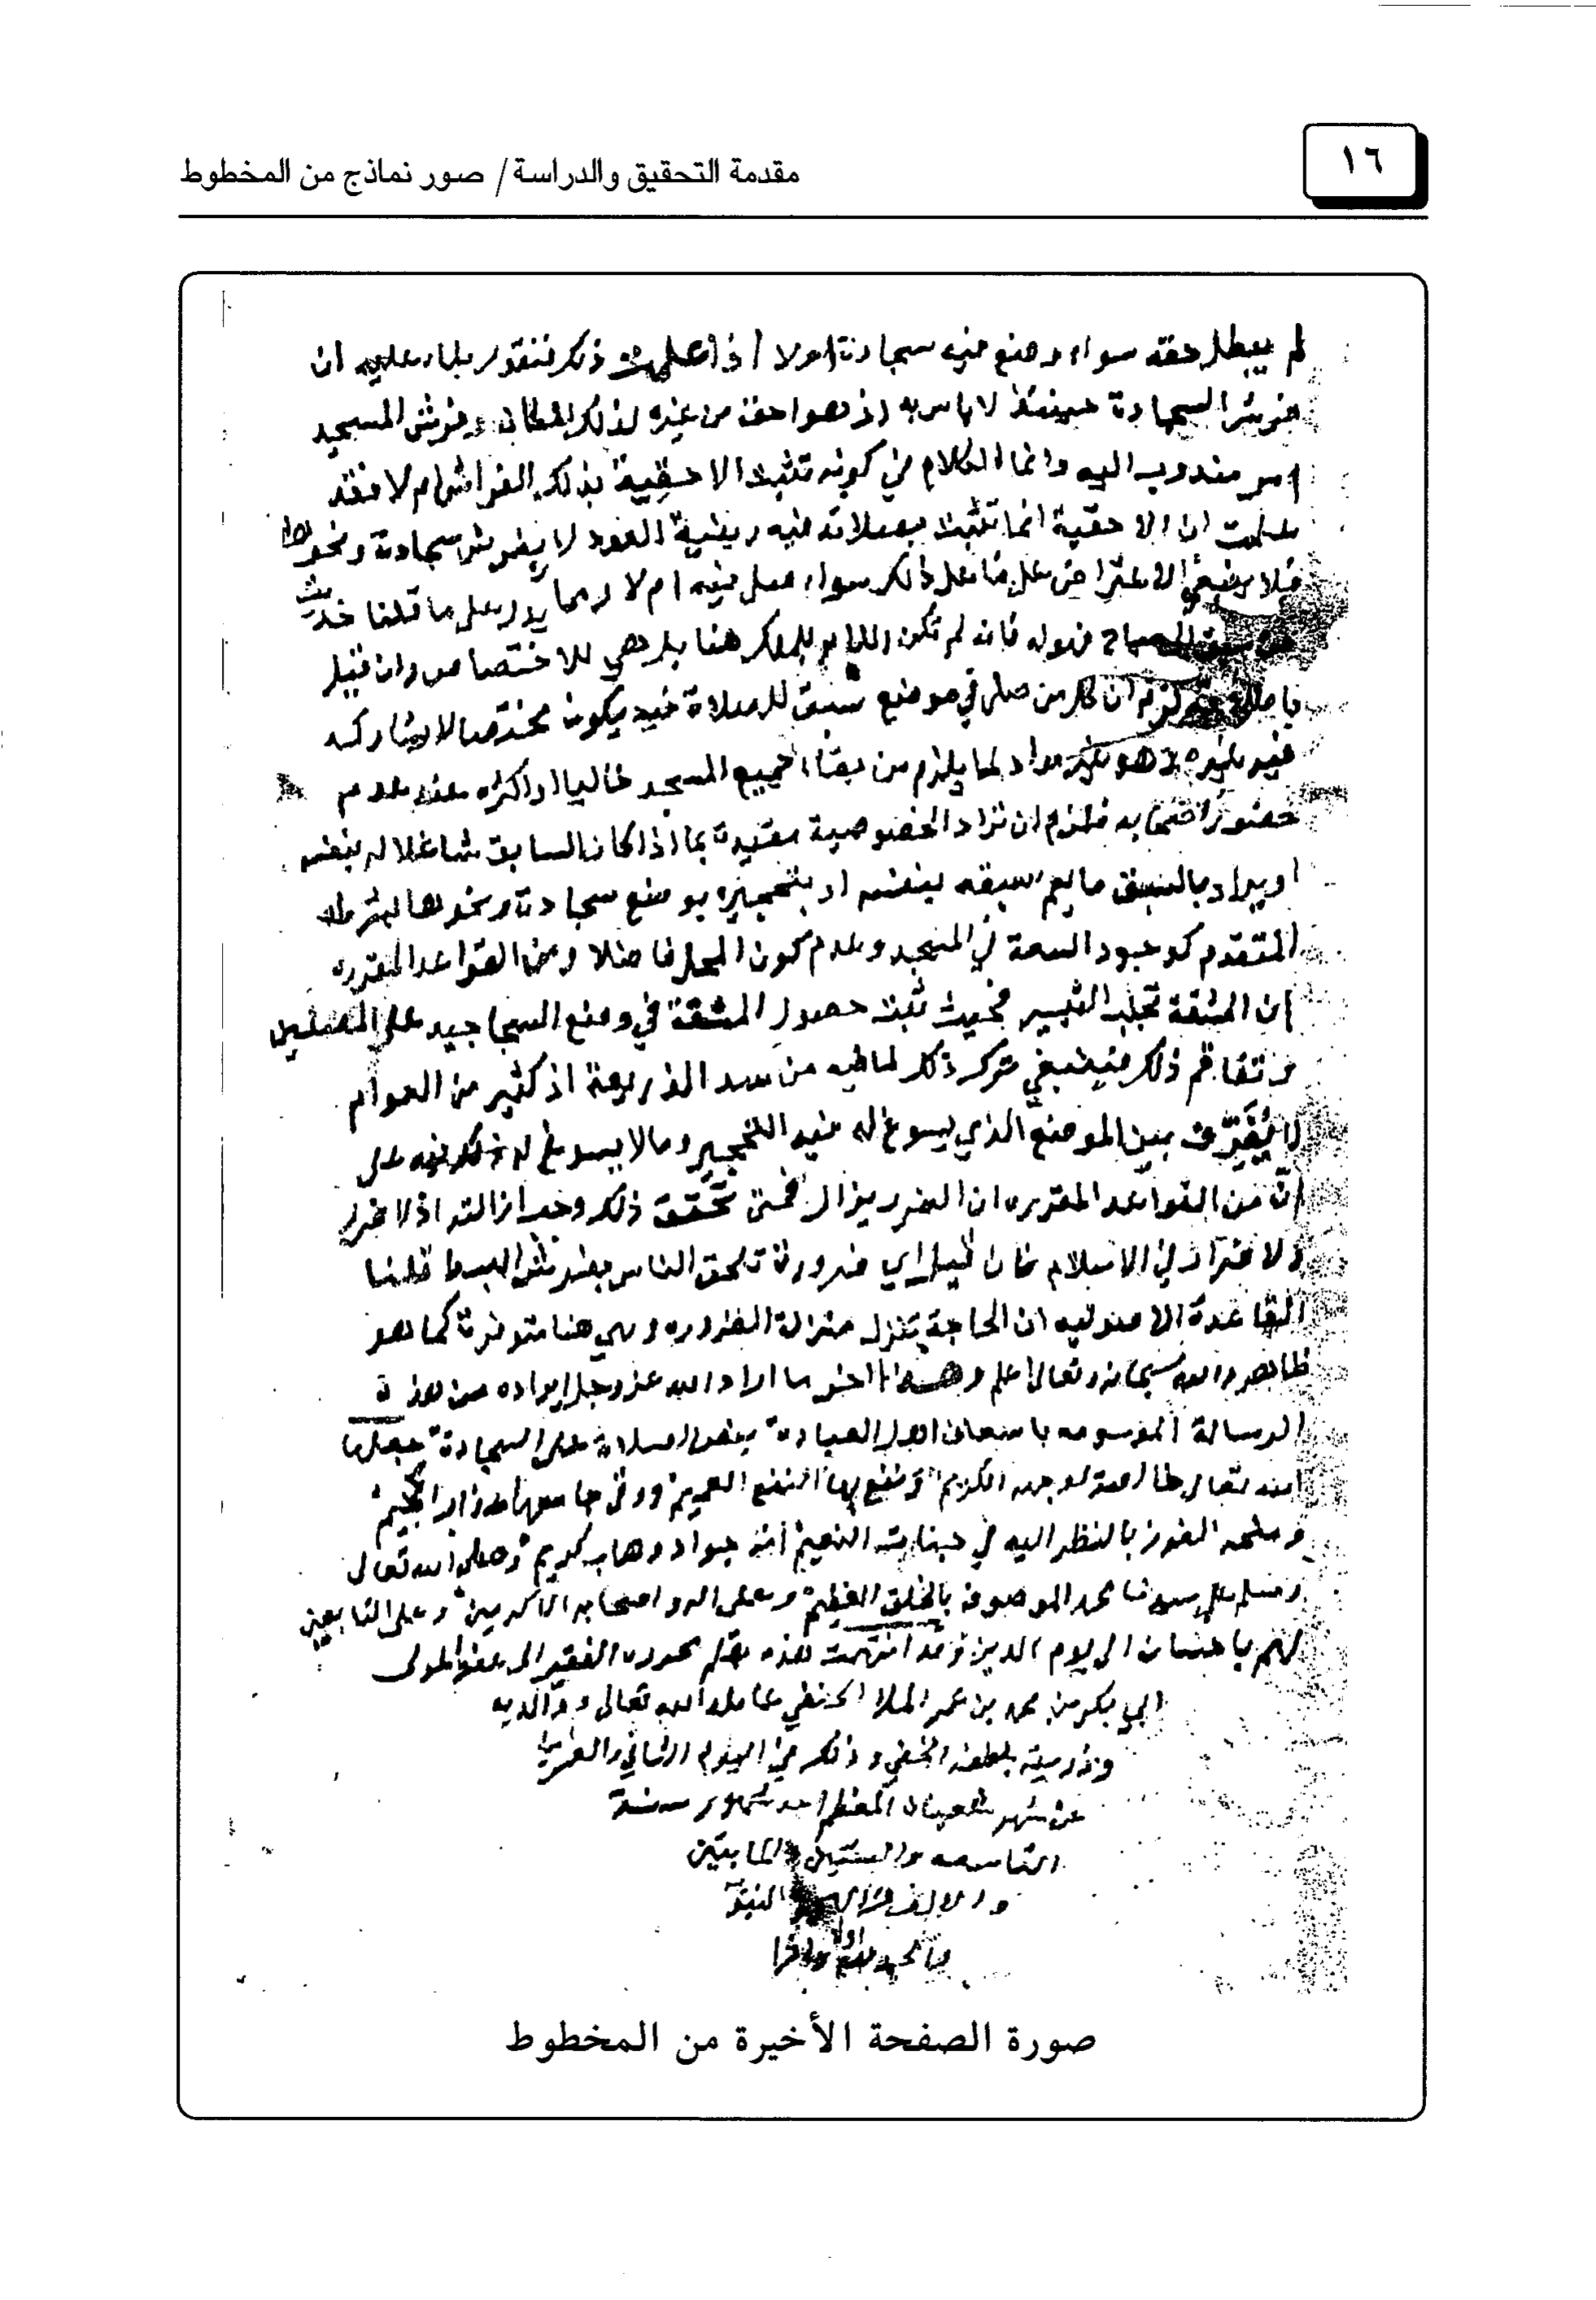 ١٦
مقدمة التحقيق والدراسة / صور نماذج من المخطوط
لم يبطل حقه سواء وضع فيه سجادة ام لا اذا علمت ذلك فنقول بناء عليه ان
فرش السجادة حينئذ لا باس به اذ هو احق من غيره لذلك المكان وفرش المسجد
امر مندوب اليه وانما الكلام في كونه تثبت الاحقية بذلك الفراش ام لا فقد
علمت ان الاحقية انما تثبت بصلاته فيه وبنية العود لا بفرش سجادة ونحوها
فلا ينبغي الاعتراض على فاعل ذلك سواء صلى فيه ام لا ومما يدل على ما قلنا حديث
من سبق الى مباح فهوله فانه لم تكن اللام للملك هنا بل هي للاختصاص وان قيل
لزم ان كل من صلى في موضع سبق للصلاة فيه يكون مختصا لا يشاركه
فيه غيره وهو غير مراد لما يلزم من بقاء جميع المسجد خاليا او اكثره عند عدم
حضور المختص به فلزم ان تراد الخصوصية مقيدة بما اذا كان السابق شاغلا له بنفسه
او يراد بالسبق ما يعم سبقه بنفسه او بتحجيره بوضع سجادة ونحوها بشرطه
المتقدم كوجود السعة في المسجد وعدم كون المحل فاضلا ومن القواعد المقرره
ان المشقة تجلب التيسير فحيث ثبت حصول المشقة في وضع السجاجيد على المصلين
وتفاقم ذلك فينبغي ترك ذلك لما فيه من سد الذريعة اذ كثير من العوام
لا يُفَرِّق بين الموضع الذي يسوغ له فيه التحجير وما لا يسوغ له ذلك فيه على
انّ من القواعد المقرره ان الضرر يزال فمتى تحقق ذلك وجب ازالته اذ لا ضرر
ولا ضرار في الاسلام فان قيل اي ضرورة تلحق الناس بفرش البسط قلنا
القاعدة الاصوليه ان الحاجة تنزل منزلة الضروره وهي هنا متوفرة كما هو
ظاهر والله سبحانه وتعالى اعلم وهذا اخر ما اراد الله عز وجل ايراده من هذه
الرسالة الموسومه باسعاف اهل العبادة بفضل الصلاة على السجادة جعلها
الله تعالى خالصة لوجهه الكريم ونفع بها النفع العميم ووقى جامعها عذاب الجحيم
ومنحه الفوز بالنظر اليه في جنات النعيم انه جواد وهاب كريم وصلى الله تعالى
وسلم على سيدنا محمد الموصوف بالخلق العظيم وعلى اله واصحابه الاكرمين وعلى التابعين
لهم باحسان الى يوم الدين وقد انتهت هذه بقلم محرره الفقير الى عفو المولى
ابي بكر بن محمد بن عمر الملا الحنفي عامله الله تعالى ووالديه
وذريته بلطفه الخفي وذلك في اليوم الثاني والعشرين
من شهر شعبان المعظم احد شهور سنة
التاسعه والستين والمايتين
والالف من الهجرة النبوية
والحمد لله اولا واخرا
صورة الصفحة الأخيرة من المخطوط